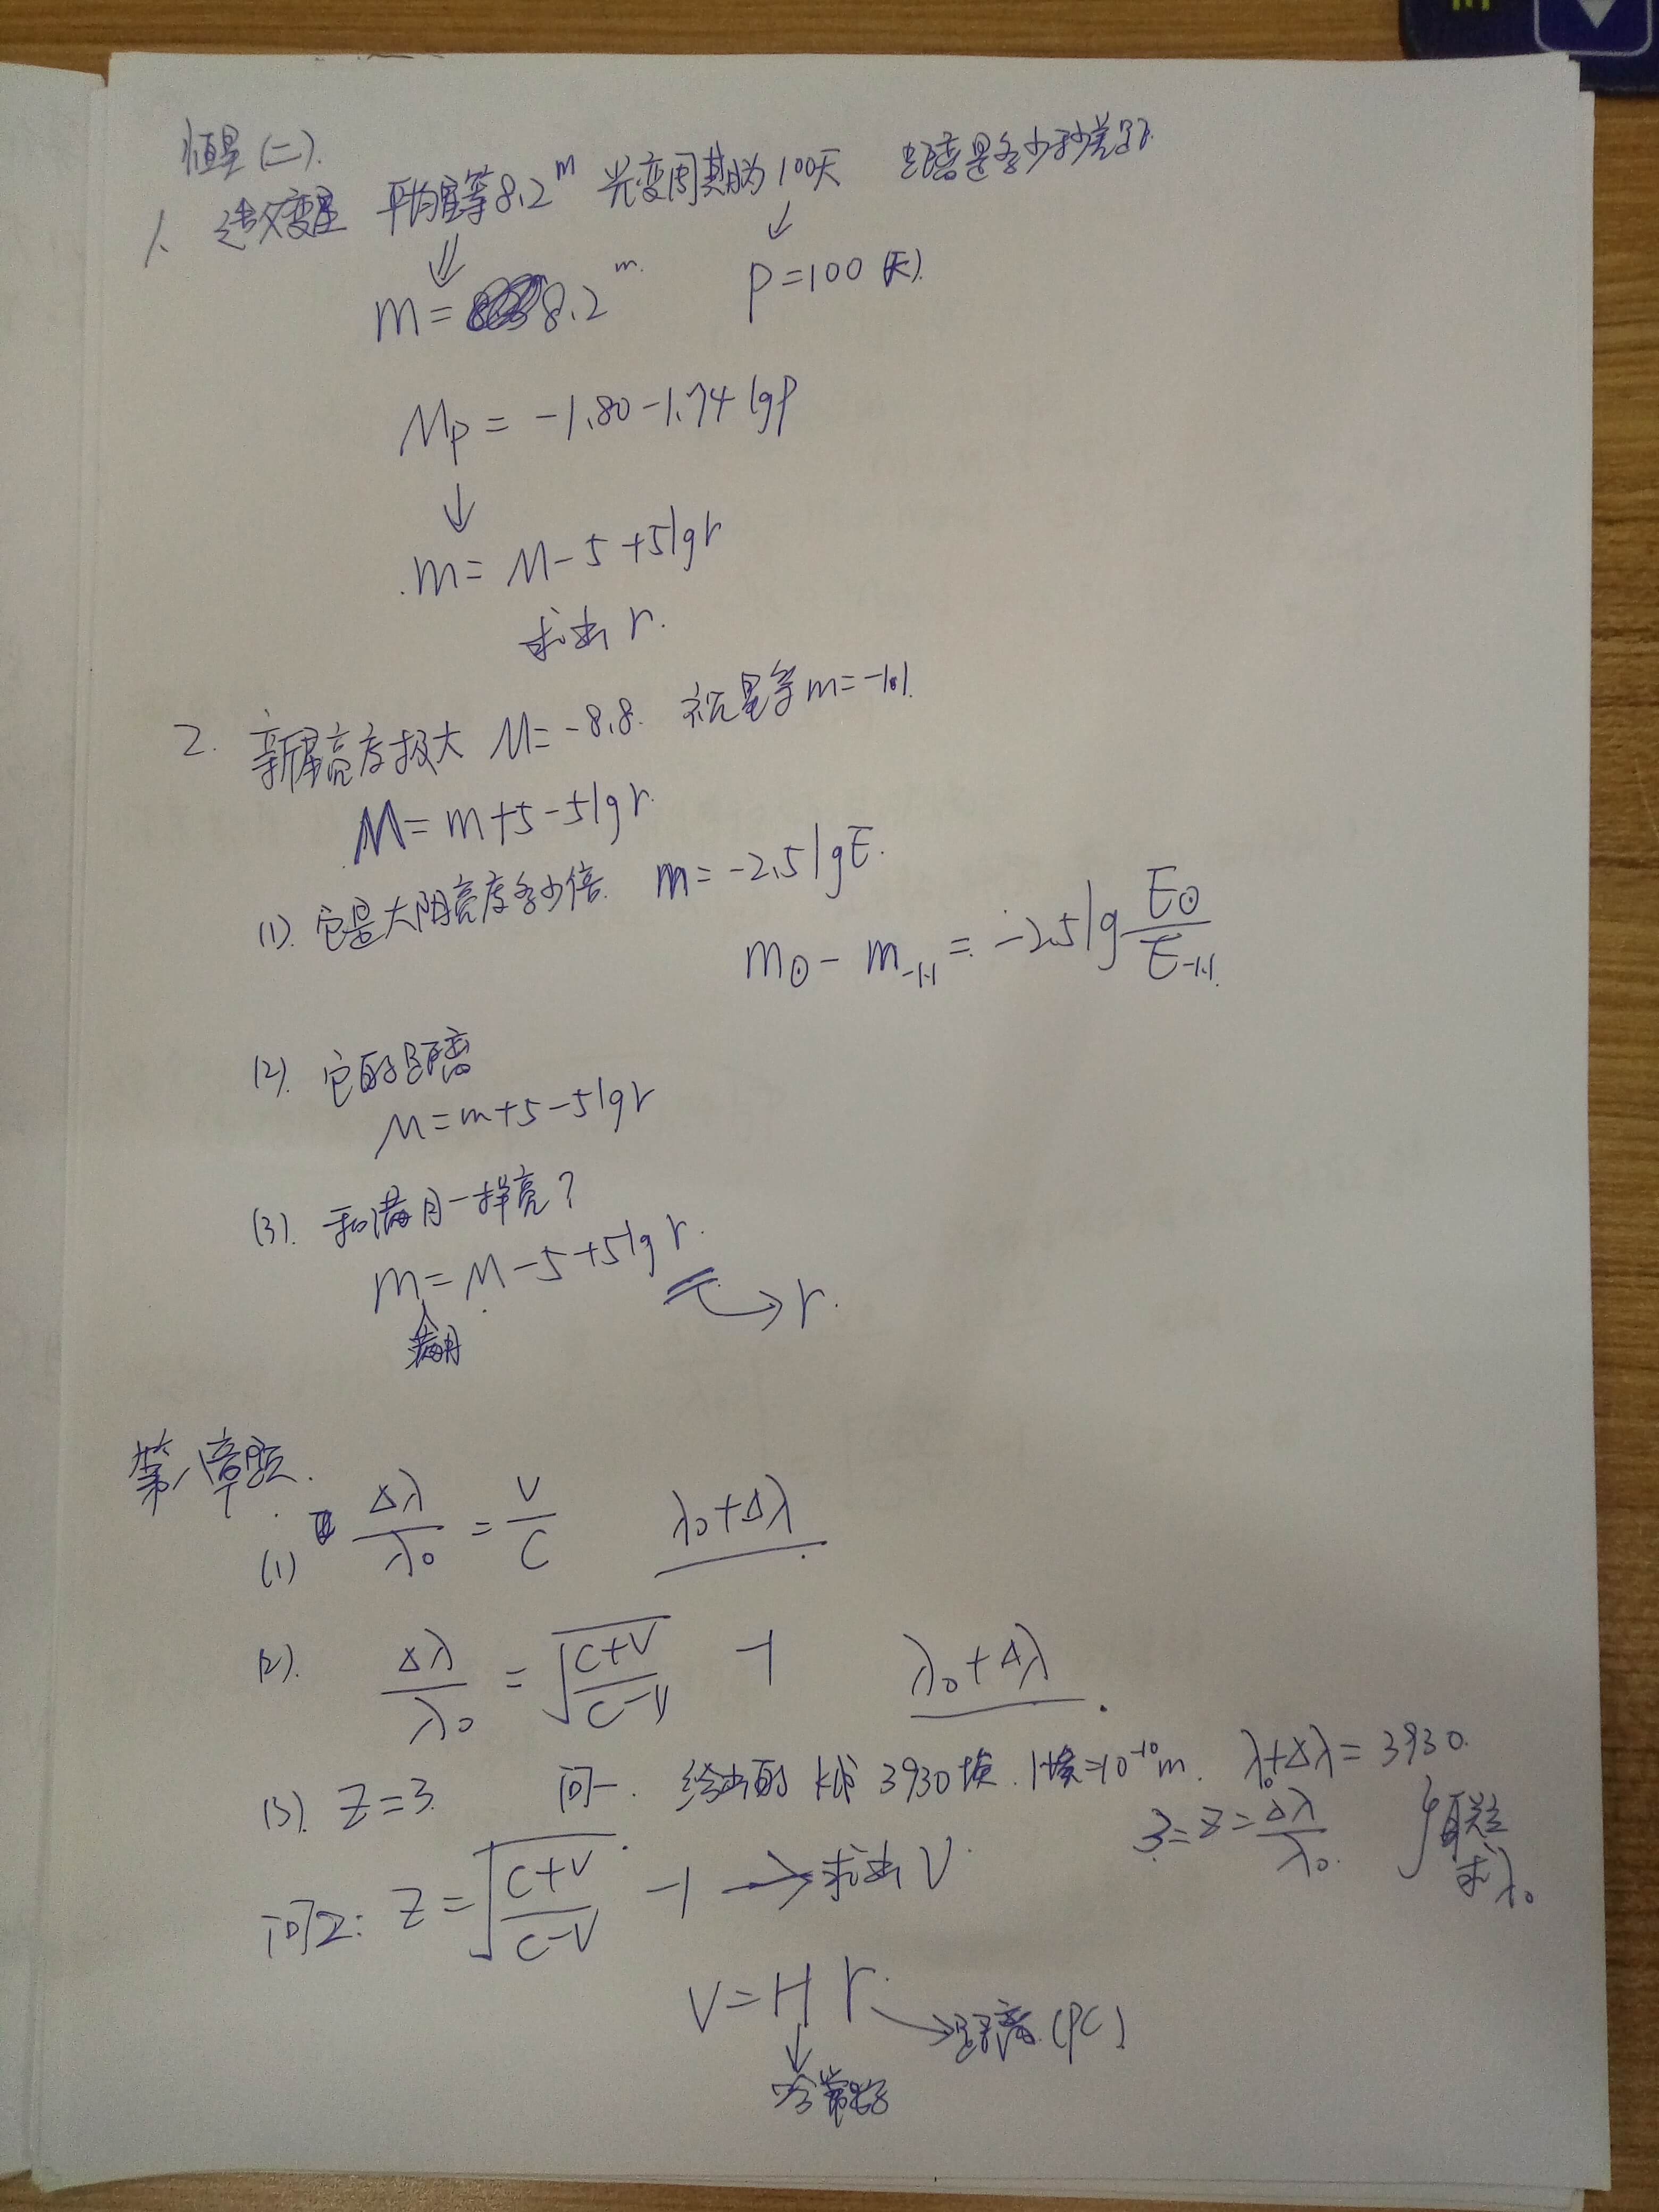 恒星(二).
1. 造父变星 平均星等8.2^m 光变周期为100天 距离是多少秒差距.
m=8.2^m. P=100(天).
M_P = -1.80-1.74 lgP
↓
m= M-5+5lgr
求出 r.
2. 新星亮度极大 M=-8.8. 视星等m=-1.1.
M=m+5-5lgr.
(1). 它是太阳亮度多少倍. m=-2.5lgE.
m_⊙ - m_-1.1 = -2.5lg E_⊙/E_-1.1
(2). 它的距离
M=m+5-5lgr
(3). 和满月一样亮?
m=M-5+5lgr. → r.
满月
第八章题.
(1) Δλ/λ₀ = V/C λ₀+Δλ
(2). Δλ/λ₀ = √((C+V)/(C-V)) -1 λ₀+Δλ.
(3). Z=3. 问一. 给出的 3930埃. 1埃=10^-10 m. λ₀+Δλ=3930.
3=Z=Δλ/λ₀. 联立
求λ₀
问2: Z=√((C+V)/(C-V)) -1 → 求出V.
V=H r. → 距离(PC)
↓
哈常数